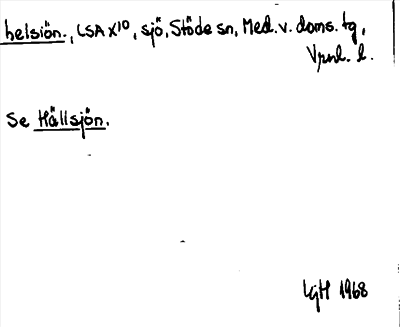 helsiön., LSA X10, sjö, Stöde sn, Med. v. doms. tg,
Vrnl. l.
Se Hällsjön.
LgH 1968